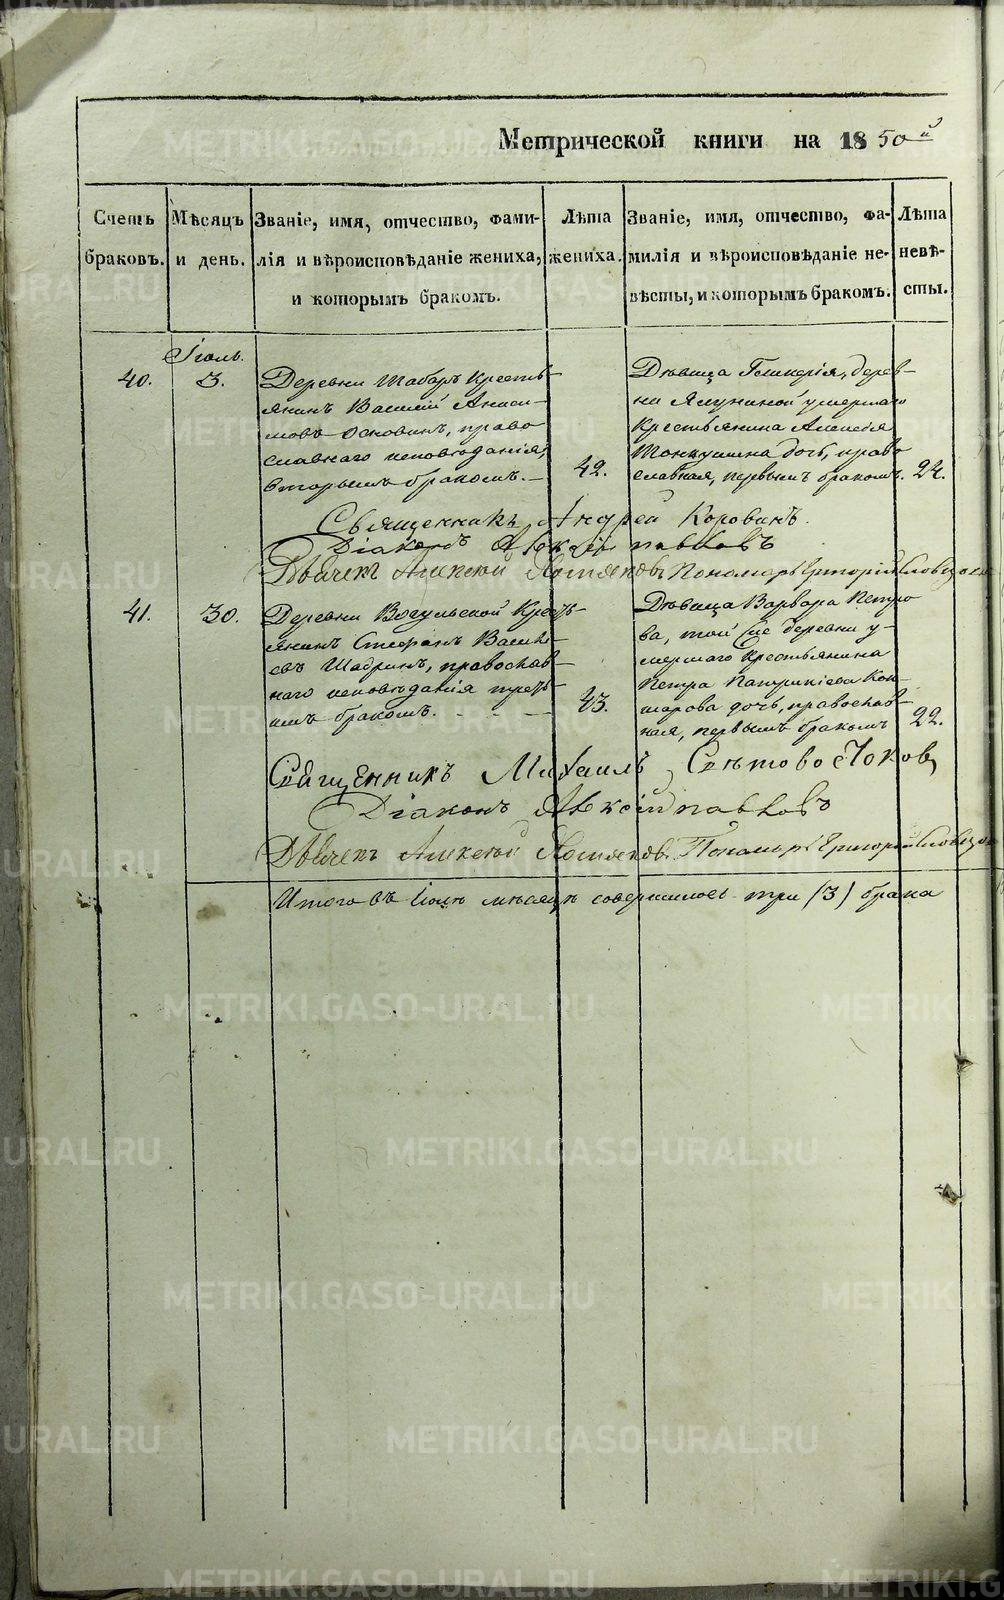 Метрической книги на 1850й
Счетъ браковъ.
Мѣсяцъ и день.
Званіе, имя, отчество, фами-
лія и вѣроисповѣданіе жениха,
и которымъ бракомъ.
Лѣта жениха.
Званіе, имя, отчество, фа-
милія и вѣроисповѣданіе не-
вѣсты, и которымъ бракомъ.
Лѣта невѣ-
сты.
Іюль.
40.
3.
Деревни Шабаръ Кресть-
янинъ Василій Аниси-
мовъ Основинъ, право
славнаго исповѣданія,
вторымъ бракомъ.
42.
Дѣвица Гликерія, дерев-
ни Ялуниной умершаго
Крестьянина Алексѣя
дочь, право
славная, первымъ бракомъ.
24.
Священникъ Андрей Коровинъ.
Діаконъ Павловъ
Дьячекъ Алексѣй Хотяновъ Пономарь Григорій Словцовъ
41.
30.
Деревни Вогульской Кресть-
янинъ Стефанъ Василь-
евъ Шадринъ, православ-
наго исповѣданія треть-
имъ бракомъ.
43.
Дѣвица Варвара Петро
ва, той же деревни у-
мершаго Крестьянина
Петра Патрикіева Кон-
шарова дочь, православ-
ная, первымъ бракомъ
22.
Священникъ Михаилъ
Діаконъ Павловъ
Дьячекъ Алексѣй Хотяновъ Пономарь Григорій Словцовъ
Итого въ Іюлѣ мѣсяцѣ совершилось три (3) брака
METRIKI.GASO-URAL.RU